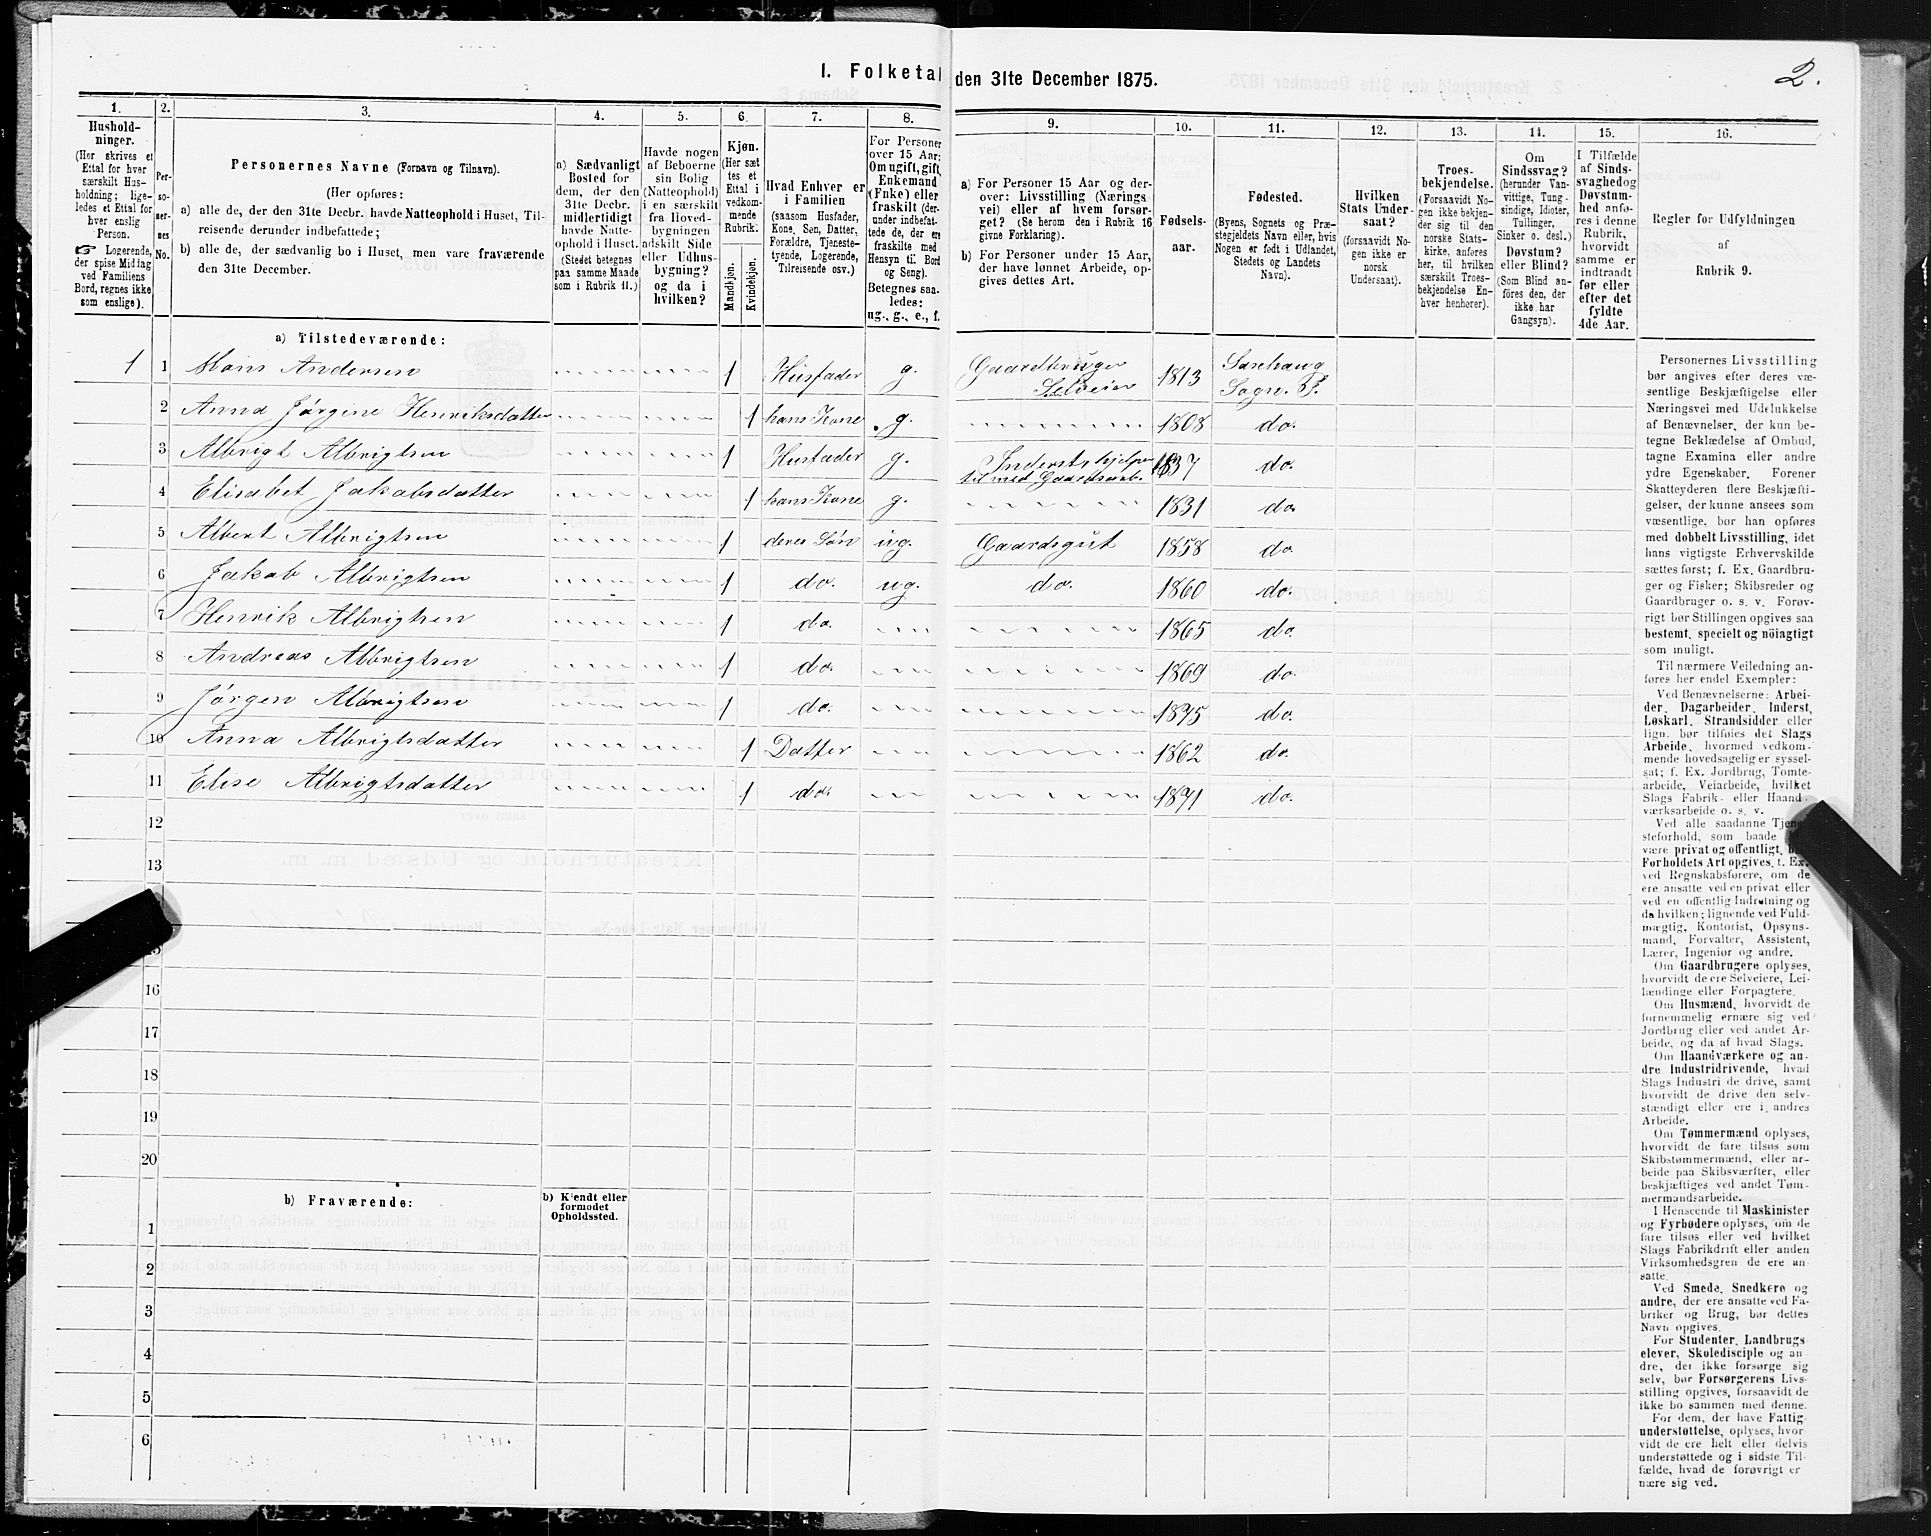 I. Folketal den 31te December 1875.
2.
1.
Hushold-
ninger.
(Her skrives et
Ettal for hver
særskilt Hus-
holdning; lige-
ledes et Ettal for
hver enslig
Person.
☞ Logerende,
der spise Middag
ved Familiens
Bord, regnes ikke
som enslige).
2.
Per-
so-
ner-
nes
No.
3.
Personernes Navne (Fornavn og Tilnavn).
(Her opføres:
a) alle de, der den 31te Decbr. havde Natteophold i Huset, Til-
reisende derunder indbefattede;
b) alle de, der sædvanlig bo i Huset, men vare fraværende
den 31te December.
4.
a) Sædvanligt
Bosted for
dem, der den
31te Decbr.
midlertidigt
havde Natte-
ophold i Huset.
(Stedet betegnes
paa samme Maade
som i Rubrik 11.)
5.
Havde nogen
af Beboerne
sin Bolig
(Natteophold)
i en særskilt
fra Hoved-
bygningen
adskilt Side
eller Udhus-
bygning?
og da i
hvilken?
6.
Kjøn.
(Her sæt
tes et
Ettal i
vedkom-
mende
Rubrik.
Mandkjøn.
Kvindekjøn.
7.
Hvad Enhver er
i Familien
(saasom Husfader,
Kone, Søn, Datter,
Forældre, Tjeneste-
tyende, Logerende,
Tilreisende osv.)
8.
For Personer
over 15 Aar:
Om ugift, gift,
Enkemand
(Enke) eller
fraskilt (der-
under indbefat-
tede de, der ere
fraskilte med
Hensyn til Bord
og Seng).
Betegnes saa-
ledes:
ug., g., e., f.
9.
a) For Personer 15 Aar og der-
over: Livsstilling (Nærings
vei) eller af hvem forsør-
get? (Se herom den i Rubrik 16
givne Forklaring).
b) For Personer under 15 Aar,
der have lønnet Arbeide, op-
gives dettes Art.
10.
Fødsels-
aar.
11.
Fødested.
(Byens, Sognets og Præ-
stegjeldets Navn eller, hvis
Nogen er født i Udlandet,
Stedets og Landets
Navn).
12.
Hvilken
Stats Under-
saat?
(forsaavidt No-
gen ikke er
norsk
Undersaat).
13.
Troes-
bekjendelse.
(Forsaavidt No-
gen ikke bekjen-
der sig til den
norske Stats-
kirke, anføres
her, til hvilken
særskilt Troes-
bekjendelse En-
hver henhører).
14.
Om
Sindssvag?
(herunder Van-
vittige, Tung-
sindige, Idioter,
Tullinger,
Sinker o. desl.)
Døvstum?
eller Blind?
(Som Blind an-
føres den, der
ikke har
Gangsyn).
15.
I Tilfælde
af Sinds-
svaghed og
Døvstum-
hed anfø-
res i denne
Rubrik,
hvorvidt
samme er
indtraadt
før eller
efter det
fyldte
4de Aar.
16.
Regler for Udfyldningen
af
Rubrik 9.
a) Tilstedeværende:
1 1 Hans Andersen 1 Husfader g. Gaardbruger Selveier 1813 Sørehaug Sogn. P.
2 Anna Jørgine Henriksdatter 1 hans Kone g. 1808 do.
3 Albrigt Albrigtsen 1 Husfader g. Inderst, hjelper til med Gaardsarb. 1837 do.
4 Elisabet Jakobsdatter 1 hans Kone g. 1831 do
5 Albert Albrigtsen 1 deres Søn ug. Gaardsgut 1858 do
6 Jakob Albrigtsen 1 do. ug. do. 1860 do.
7 Henrik Albrigtsen 1 do. 1865 do.
8 Andreas Albrigtsen 1 do. 1869 do.
9 Jørgen Albrigtsen 1 do. 1875 do.
10 Anna Albrigtsdatter 1 Datter 1862 do.
11 Elise Albrigtsdatter 1 do. 1871 do.
12
13
15
16
17
18
19
20
b) Fraværende:
b) Kjendt eller
formodet
Opholdssted.
1
2
3
4
5
6
Personernes Livsstilling
bør angives efter deres væ-
sentlige Beskjæftigelse eller
Næringsvei med Udelukkelse
af Benævnelser, der kun be-
tegne Beklædelse af Ombud,
tagne Examina eller andre
ydre Egenskaber. Forener
Skatteyderen flere Beskjæfti-
gelser, der kunne ansees som
væsentlige, bør han opføres
med dobbelt Livsstilling, idet
hans vigtigste Erhvervskilde
sættes først; f. Ex. Gaardbru-
ger og Fisker; Skibsreder og
Gaardbruger o. s. v. Forøv-
rigt bør Stillingen opgives saa
bestemt, specielt og nöiagtigt
som muligt.
Til nærmere Veiledning an-
føres her endel Exempler:
Ved Benævnelserne: Arbei-
der, Dagarbeider, Inderst,
Løskarl, Strandsidder eller
lign. bør tilføies det Slags
Arbeide, hvormed vedkom-
mende hovedsagelig er syssel-
sat; f. Ex. Jordbrug, Tomte-
arbeide, Veiarbeide, hvilket
Slags Fabrik- eller Haand-
værksarbeide o. s. v.
Ved alle saadanne Tjene-
steforhold, som baade
være privat og offentlig,
Forholdets Art opgives, f. Ex.
ved Regnskabsførere, om de
ere ansatte ved en privat eller
ved en offentlig Indretning og
da hvilken; lignende ved Fuld-
mægtig, Kontorist, Opsyns-
mand, Forvalter, Assistent,
Lærer, Ingeniør og andre.
Om Gaardbrugere oplyses,
hvorvidt de ere Selveiere, Lei-
lændinge eller Forpagtere.
Om Husmænd, hvorvidt de
fornemmelig ernære sig ved
Jordbrug eller ved andet Ar-
beide, og da af hvad Slags.
Om Haandværkere og an-
dre Industridrivende, hvad
Slags Industri de drive, samt
hvorvidt de drive den selv-
stændigt eller ere i andres
Arbeide.
Om Tømmermænd oplyses,
hvorvidt de fare tilsøs som
Skibstømmermænd, eller ar-
beide paa Skibsværfter, eller
beskjæftiges ved andet Tøm-
mermandsarbeide.
I Henseende til Maskinister
og Fyrbødere oplyses, om de
fare tilsøs eller ved hvilket
Slags Fabrikdrift eller anden
Virksomhedsgren de ere an-
satte.
Ved Smede, Snedkere og
andre, der ere ansatte ved Fa-
briker og Brug, bør dettes
Navn opgives.
For Studenter, Landbrugs-
elever, Skoledisciple og an-
dre, der ikke forsørge sig
selv, bør Forsørgerens Livs-
stilling opgives, forsaavidt de
ikke bo sammen med denne.
For dem, der have Fattig-
understøttelse, oplyses, hvor
vidt de ere helt eller delvis
understøttede og i sidste Til-
fælde, hvad de forøvrigt er
nære sig ved.